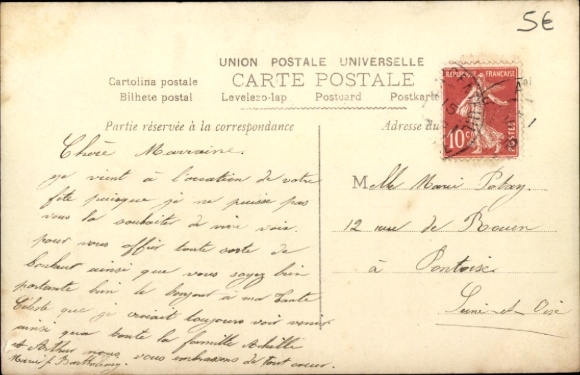 5€
UNION POSTALE UNIVERSELLE
CARTE POSTALE
Cartolina postale
Bilhete postal
Levelezo-lap
Postcard
Postkarte
Partie réservée à la correspondance
Adresse du
REPUBLIQUE FRANÇAISE
10c
POSTES
Chère Marraine.
je vient à l'occasion de votre
fête puisque je ne puisse pas
vous la souhaiter de vive voix.
pour vous offrir toute sorte de
bonheur ainsi que vous soyez bien
portante bien le bonjour à ma tante
Céleste que je croiait toujours voir venir
ainsi que toute la famille Achille
et Arthur nous vous embrassons de tout coeur.
Marie
Melle Marie
12 rue de Rouen
à Pontoise
Seine-et-Oise